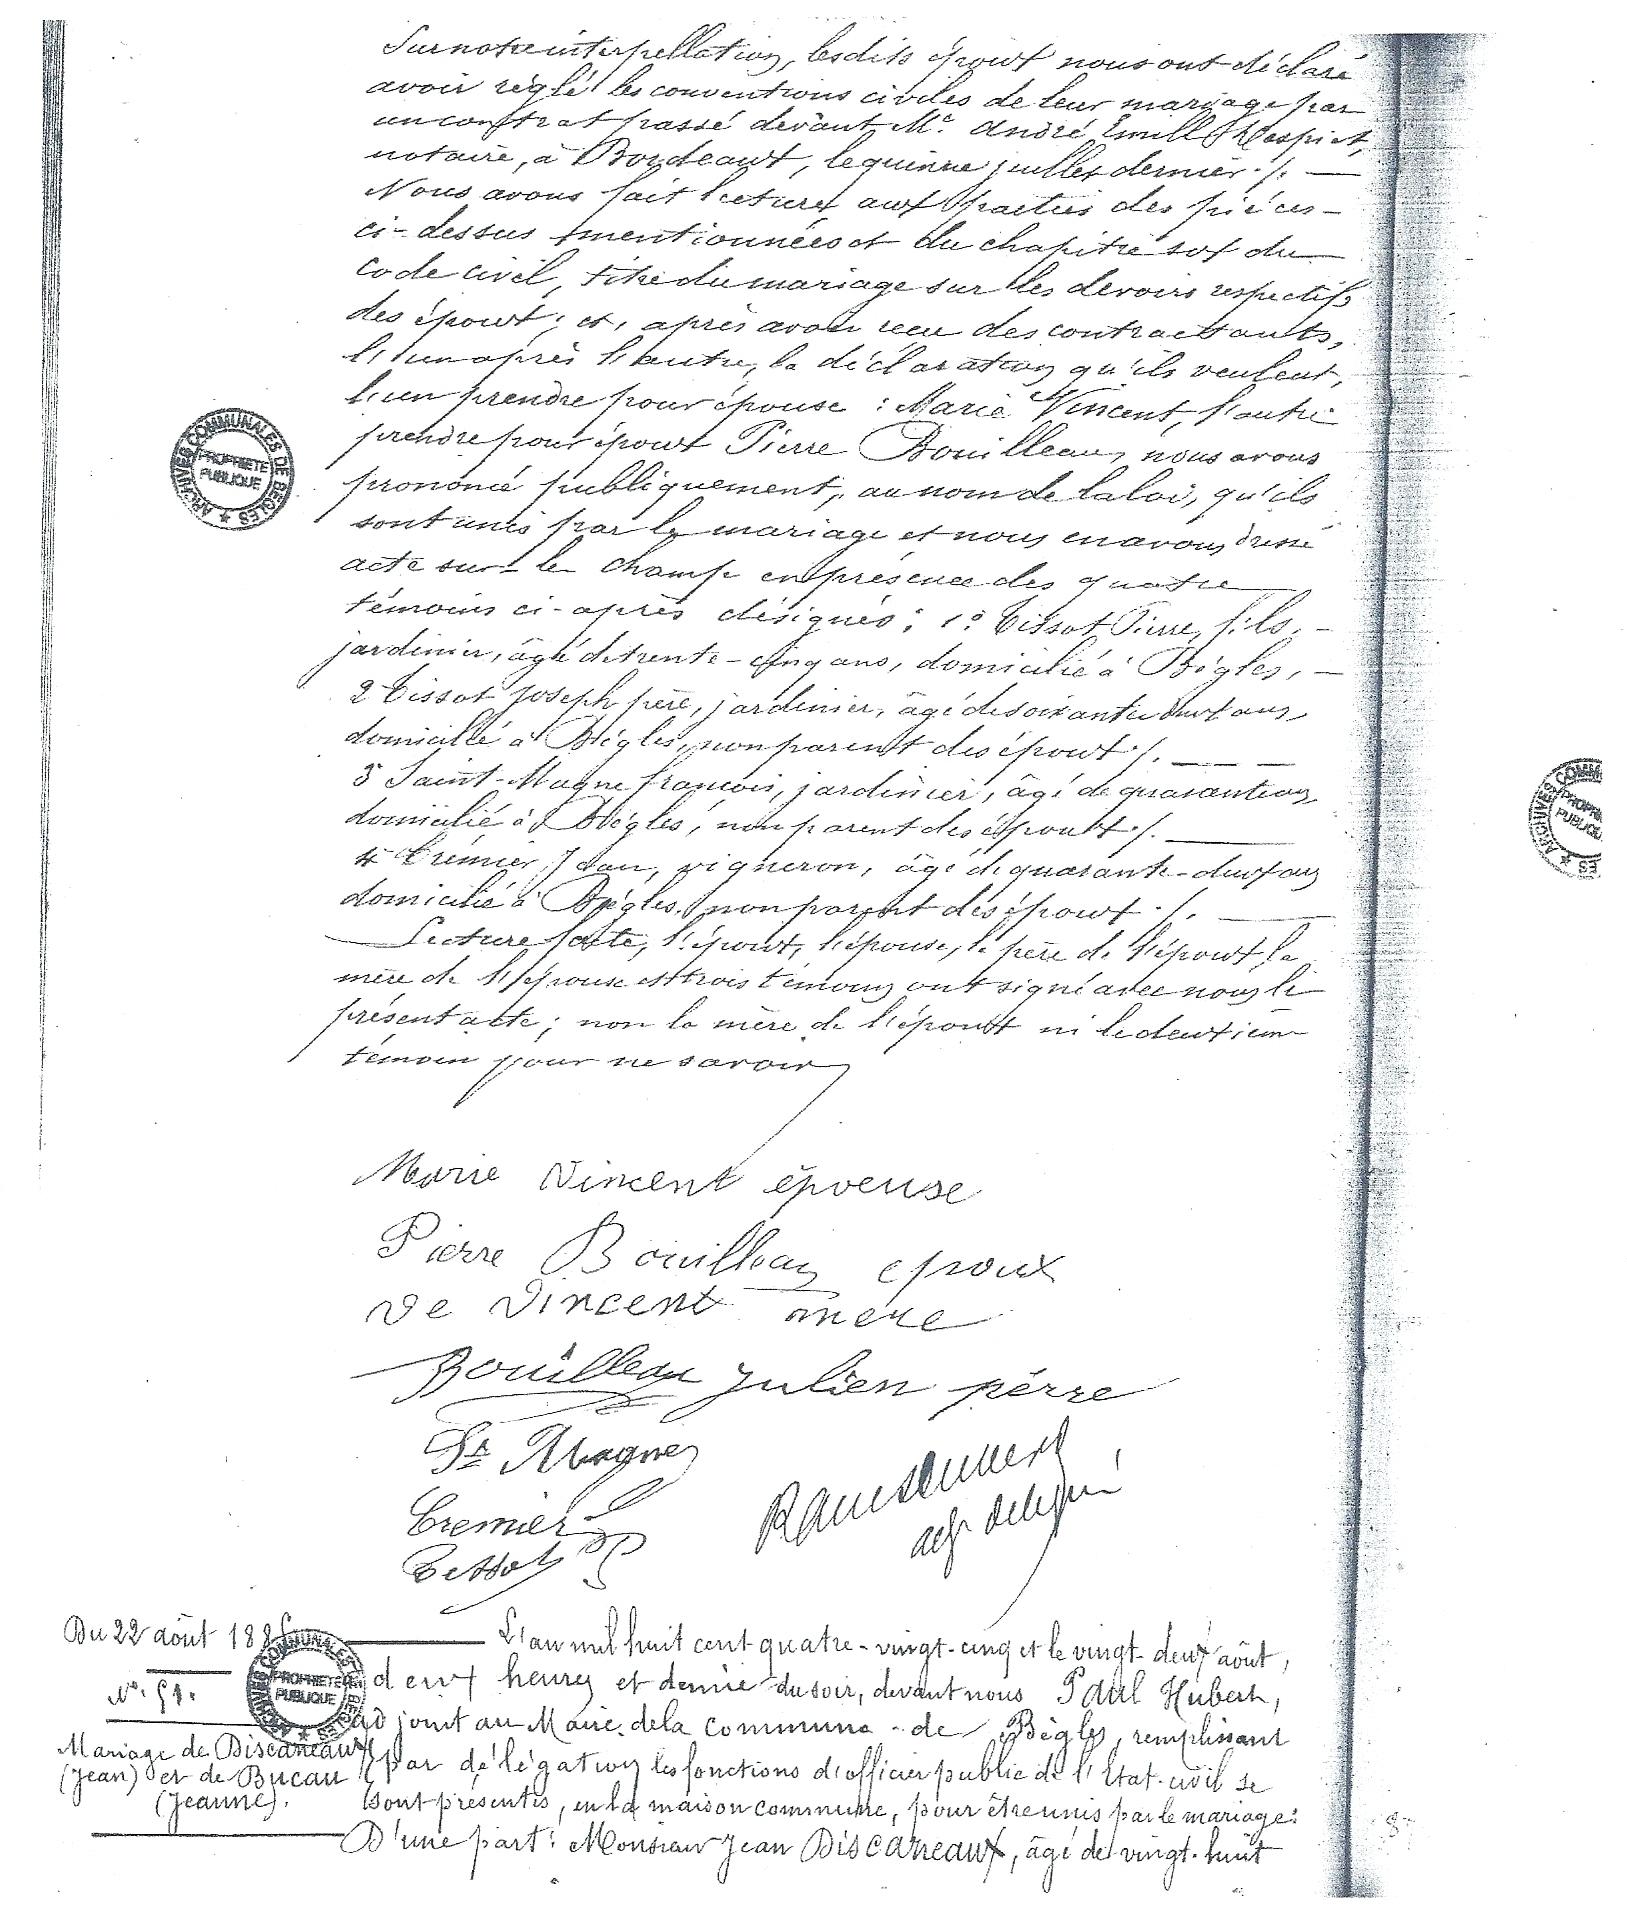 Sur notre interpellation, lesdits époux nous ont déclaré
avoir réglé les conventions civiles de leur mariage par
un contrat passé devant Me. André Emile
notaire, à Bordeaux, le quinze juillet dernier ./. —
Nous avons fait lecture aux parties des pièces —
ci-dessus mentionnées et du chapitre six du
code civil, titre du mariage sur les devoirs respectifs
des époux; et, après avoir reçu des contractants,
l'un après l'autre, la déclaration qu'ils veulent,
l'un prendre pour épouse : Marie Vincent, l'autre
prendre pour époux Pierre Bouilleau, nous avons
prononcé publiquement, au nom de la loi, qu'ils
sont unis par le mariage et nous en avons dressé
acte sur le champ en présence des quatre
témoins ci-après désignés; 1° Tissot Pierre, fils, —
jardinier, âgé de trente-cinq ans, domicilié à Bègles, —
2 Tissot Joseph père, jardinier, âgé de soixante deux ans,
domicilié à Bègles, non parent des époux ./. — —
3° Saint-Magne françois, jardinier, âgé de quarante ans,
domicilié à Bègles, non parent des époux ./. —
4° Crémier Jean, vigneron, âgé de quarante-deux ans
domicilié à Bègles, non parent des époux ./. —
— Lecture faite, l'époux, l'épouse, le père de l'époux, la
mère de l'épouse et trois témoins ont signé avec nous le
présent acte; non la mère de l'époux ni le deuxième
témoin pour ne savoir
Marie Vincent épouse
Pierre Bouilleau epoux
Ve Vincent mère
Bouilleau Julien père
St Magne
Cremier
Tissot
adj. délégué
Du 22 août 188
N°. 51.
Mariage de Discazeaux
(Jean) et de Bucau
(Jeanne).
L'an mil huit cent quatre-vingt-cinq et le vingt-deux août,
deux heures et demie du soir, devant nous Paul Hubert,
adjoint au Maire de la commune de Bègles, remplissant
par délégation les fonctions d'officier public de l'Etat-civil se
sont présentés, en la maison commune, pour être unis par le mariage:
D'une part: Monsieur Jean Discazeaux, âgé de vingt-huit
ARCHIVES COMMUNALES DE BEGLES
PROPRIETE
PUBLIQUE